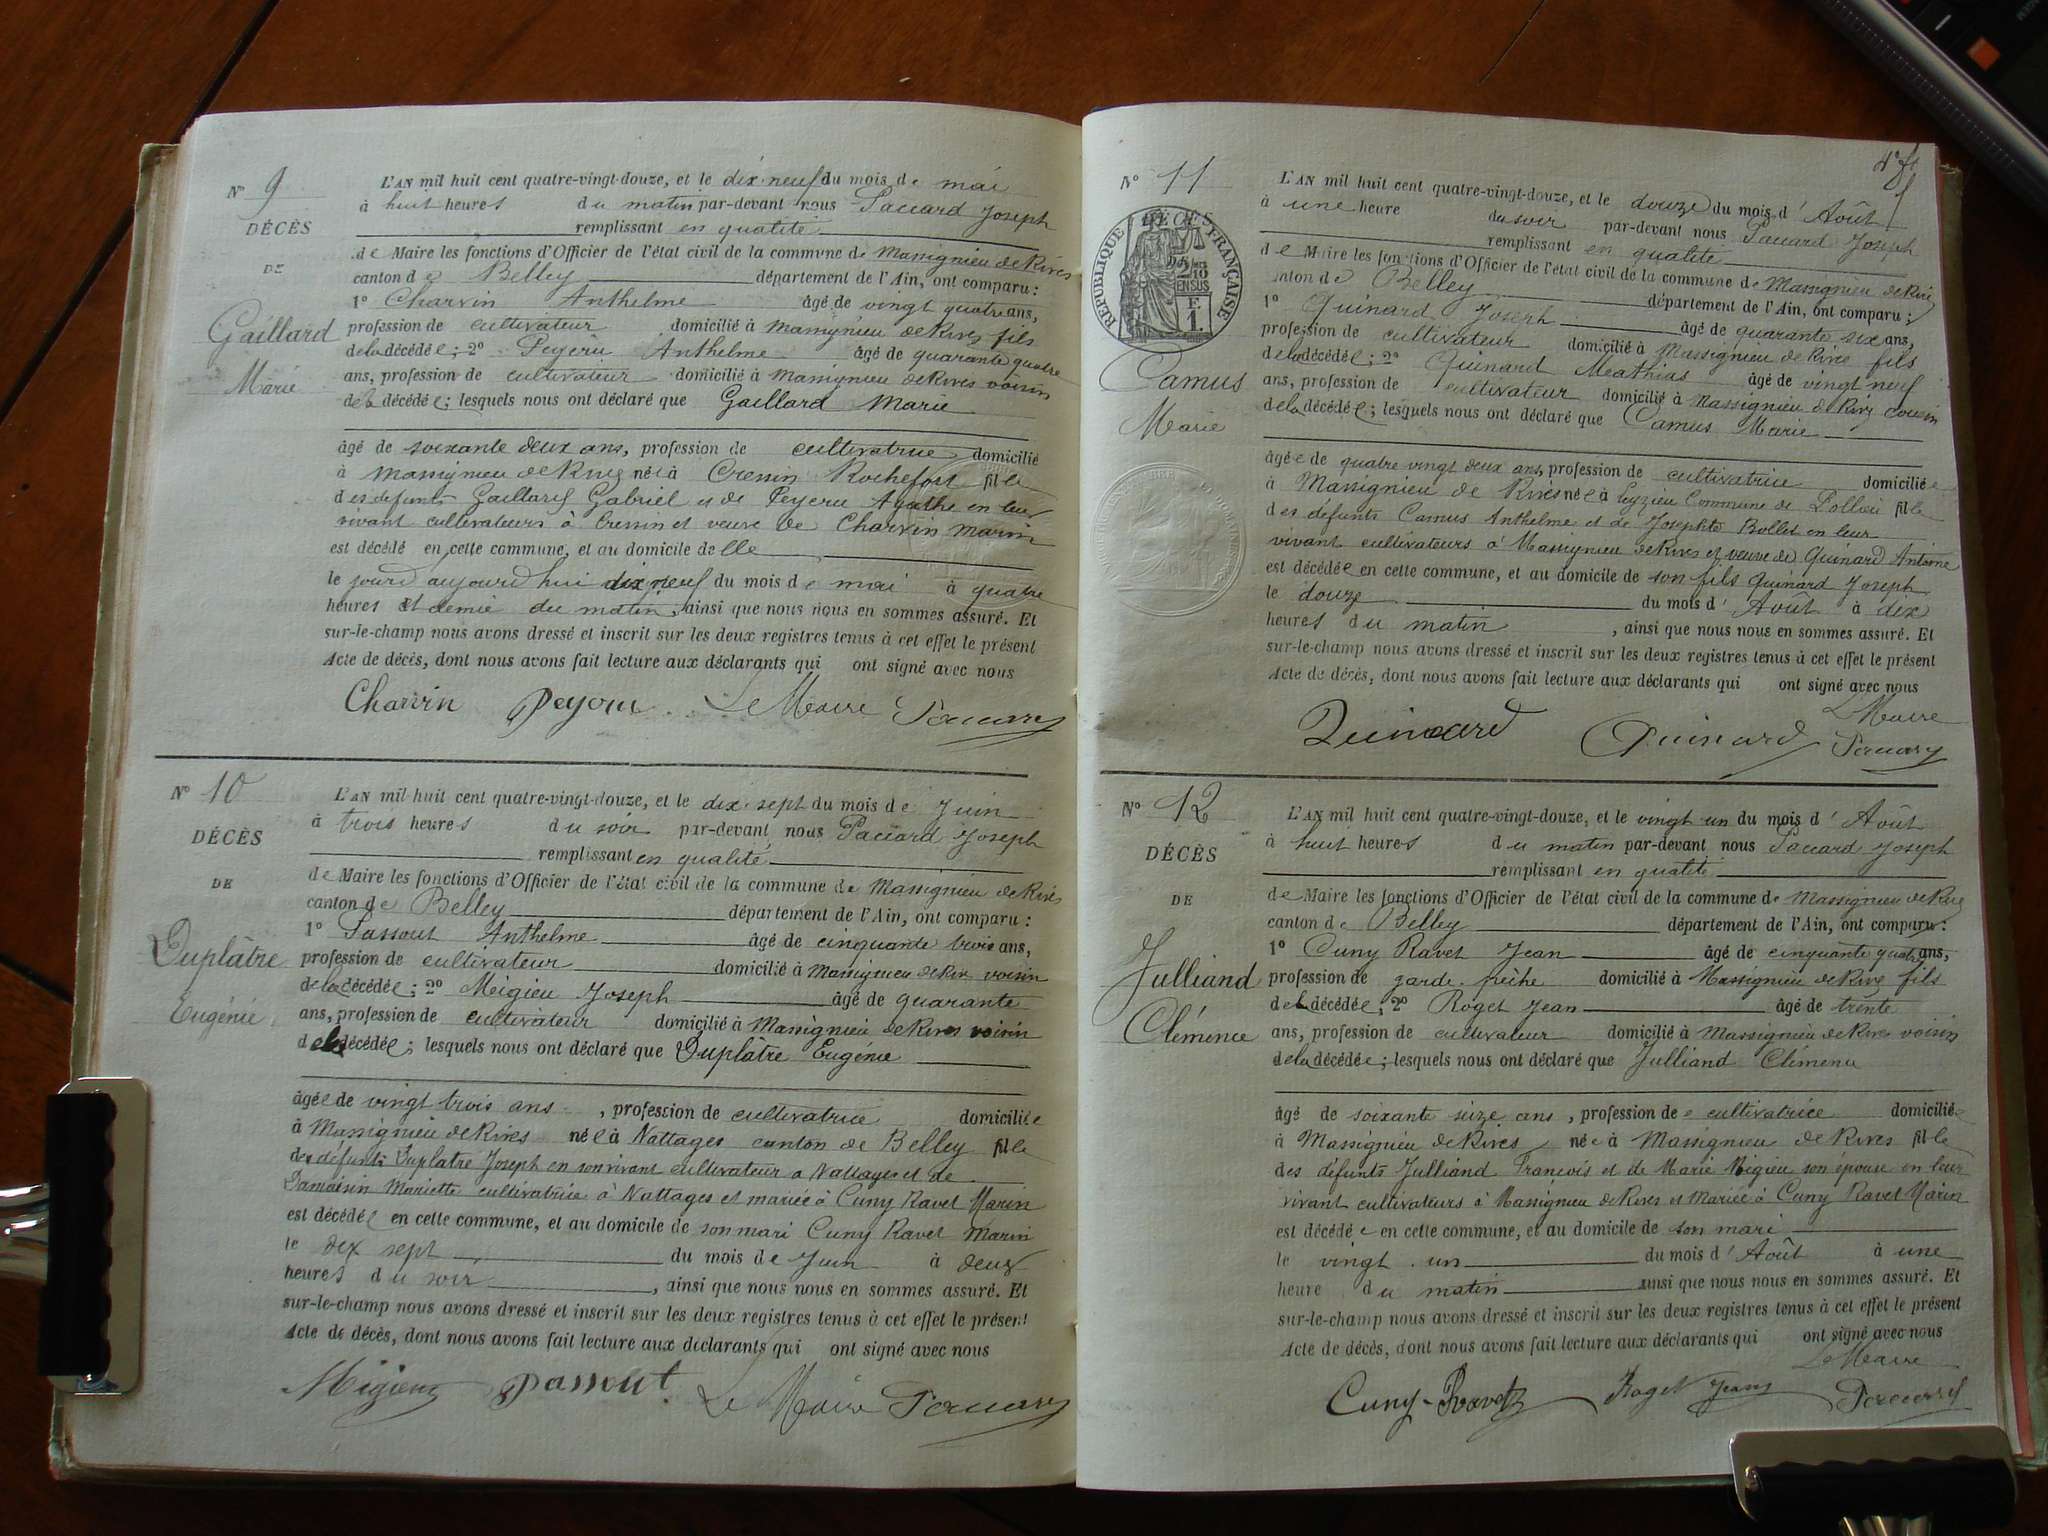 N° 9
DÉCÈS
DE
Gaillard
Marie
L'AN mil huit cent quatre-vingt-douze, et le dix neuf du mois de mai
à huit heures du matin par-devant nous Paccard Joseph
remplissant en qualité
de Maire les fonctions d'Officier de l'état civil de la commune de Massignieu de Rives
canton de Belley département de l'Ain, ont comparu :
1° Charvin Anthelme âgé de vingt quatre ans,
profession de cultivateur domicilié à Massignieu de Rives fils
de la décédée ; 2° Peyeru Anthelme âgé de quarante quatre
ans, profession de cultivateur domicilié à Massignieu de Rives voisin
de la décédée ; lesquels nous ont déclaré que Gaillard Marie
âgé de soixante deux ans, profession de cultivatrice domicilié
à Massignieu de Rives née à Cressin Rochefort fille
des défunts Gaillard Gabriel et de Peyeru Agathe en leur
vivant cultivateurs à Cressin et veuve de Charvin Marin
est décédé en cette commune, et au domicile d'elle
le jourd aujourd'hui dix neuf du mois de mai à quatre
heures et demie du matin, ainsi que nous nous en sommes assuré. Et
sur-le-champ nous avons dressé et inscrit sur les deux registres tenus à cet effet le présent
Acte de décès, dont nous avons fait lecture aux déclarants qui ont signé avec nous
Charvin Peyeru Le Maire Paccard
N° 10
DÉCÈS
DE
Duplâtre
Eugénie
L'AN mil huit cent quatre-vingt-douze, et le dix-sept du mois de Juin
à trois heures du soir par-devant nous Paccard Joseph
remplissant en qualité
de Maire les fonctions d'Officier de l'état civil de la commune de Massignieu de Rives
canton de Belley département de l'Ain, ont comparu :
1° Passout Anthelme âgé de cinquante trois ans,
profession de cultivateur domicilié à Massignieu de Rives voisin
de la décédée ; 2° Migieu Joseph âgé de quarante
ans, profession de cultivateur domicilié à Massignieu de Rives voisin
de la décédée ; lesquels nous ont déclaré que Duplâtre Eugénie
âgée de vingt trois ans, profession de cultivatrice domiciliée
à Massignieu de Rives née à Nattages canton de Belley fille
des défunts Duplatre Joseph en son vivant cultivateur à Nattages et de
Damaisin Mariette cultivatrice à Nattages et mariée à Cuny Ravet Marin
est décédée en cette commune, et au domicile de son mari Cuny Ravet Marin
le dix sept du mois de Juin à deux
heures du soir, ainsi que nous nous en sommes assuré. Et
sur-le-champ nous avons dressé et inscrit sur les deux registres tenus à cet effet le présent
Acte de décès, dont nous avons fait lecture aux déclarants qui ont signé avec nous
Migieu Passout Le Maire Paccard
N° 11
RÉPUBLIQUE FRANÇAISE
DÉCÈS
2/10
EN SUS
F.
1.
Camus
Marie
L'AN mil huit cent quatre-vingt-douze, et le douze du mois d'Août
à une heure du soir par-devant nous Paccard Joseph
remplissant en qualité
de Maire les fonctions d'Officier de l'état civil de la commune de Massignieu de Rives
canton de Belley département de l'Ain, ont comparu :
1° Quinard Joseph âgé de quarante six ans,
profession de cultivateur domicilié à Massignieu de Rives fils
de la décédée ; 2° Quinard Mathias âgé de vingt neuf
ans, profession de cultivateur domicilié à Massignieu de Rives cousin
de la décédée ; lesquels nous ont déclaré que Camus Marie
âgée de quatre vingt deux ans, profession de cultivatrice domiciliée
à Massignieu de Rives née à Leyzieu Commune de Pollieu fille
des défunts Camus Anthelme et de Josephte Bollet en leur
vivant cultivateurs à Massignieu de Rives et veuve de Quinard Antoine
est décédée en cette commune, et au domicile de son fils Quinard Joseph
le douze du mois d'Août à dix
heures du matin, ainsi que nous nous en sommes assuré. Et
sur-le-champ nous avons dressé et inscrit sur les deux registres tenus à cet effet le présent
Acte de décès, dont nous avons fait lecture aux déclarants qui ont signé avec nous
Le Maire
Quinard Quinard Paccard
N° 12
DÉCÈS
DE
Julliand
Clémence
L'AN mil huit cent quatre-vingt-douze, et le vingt un du mois d'Août
à huit heures du matin par-devant nous Paccard Joseph
remplissant en qualité
de Maire les fonctions d'Officier de l'état civil de la commune de Massignieu de Rives
canton de Belley département de l'Ain, ont comparu :
1° Cuny Ravet Jean âgé de cinquante quatre ans,
profession de garde pêche domicilié à Massignieu de Rives fils
de la décédée ; 2° Roget Jean âgé de trente
ans, profession de cultivateur domicilié à Massignieu de Rives voisin
de la décédée ; lesquels nous ont déclaré que Julliand Clémence
âgé de soixante seize ans, profession de cultivatrice domiciliée
à Massignieu de Rives née à Massignieu de Rives fille
des défunts Julliand François et de Marie Migieu son épouse en leur
vivant cultivateurs à Massignieu de Rives et mariée à Cuny Ravet Marin
est décédée en cette commune, et au domicile de son mari
le vingt un du mois d'Août à une
heure du matin ainsi que nous nous en sommes assuré. Et
sur-le-champ nous avons dressé et inscrit sur les deux registres tenus à cet effet le présent
Acte de décès, dont nous avons fait lecture aux déclarants qui ont signé avec nous
Le Maire
Cuny-Ravet Roget Jean Paccard